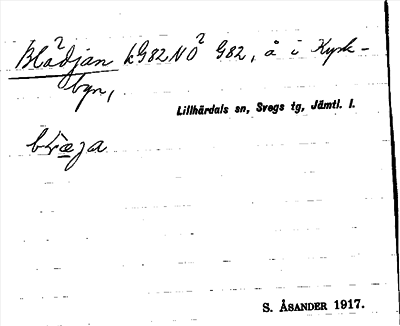 Blådjan k G82 NO G82, å i Kyrk-
byn,
Lillhärdals sn, Svegs tg, Jämtl. l.
S. ÅSANDER 1917.